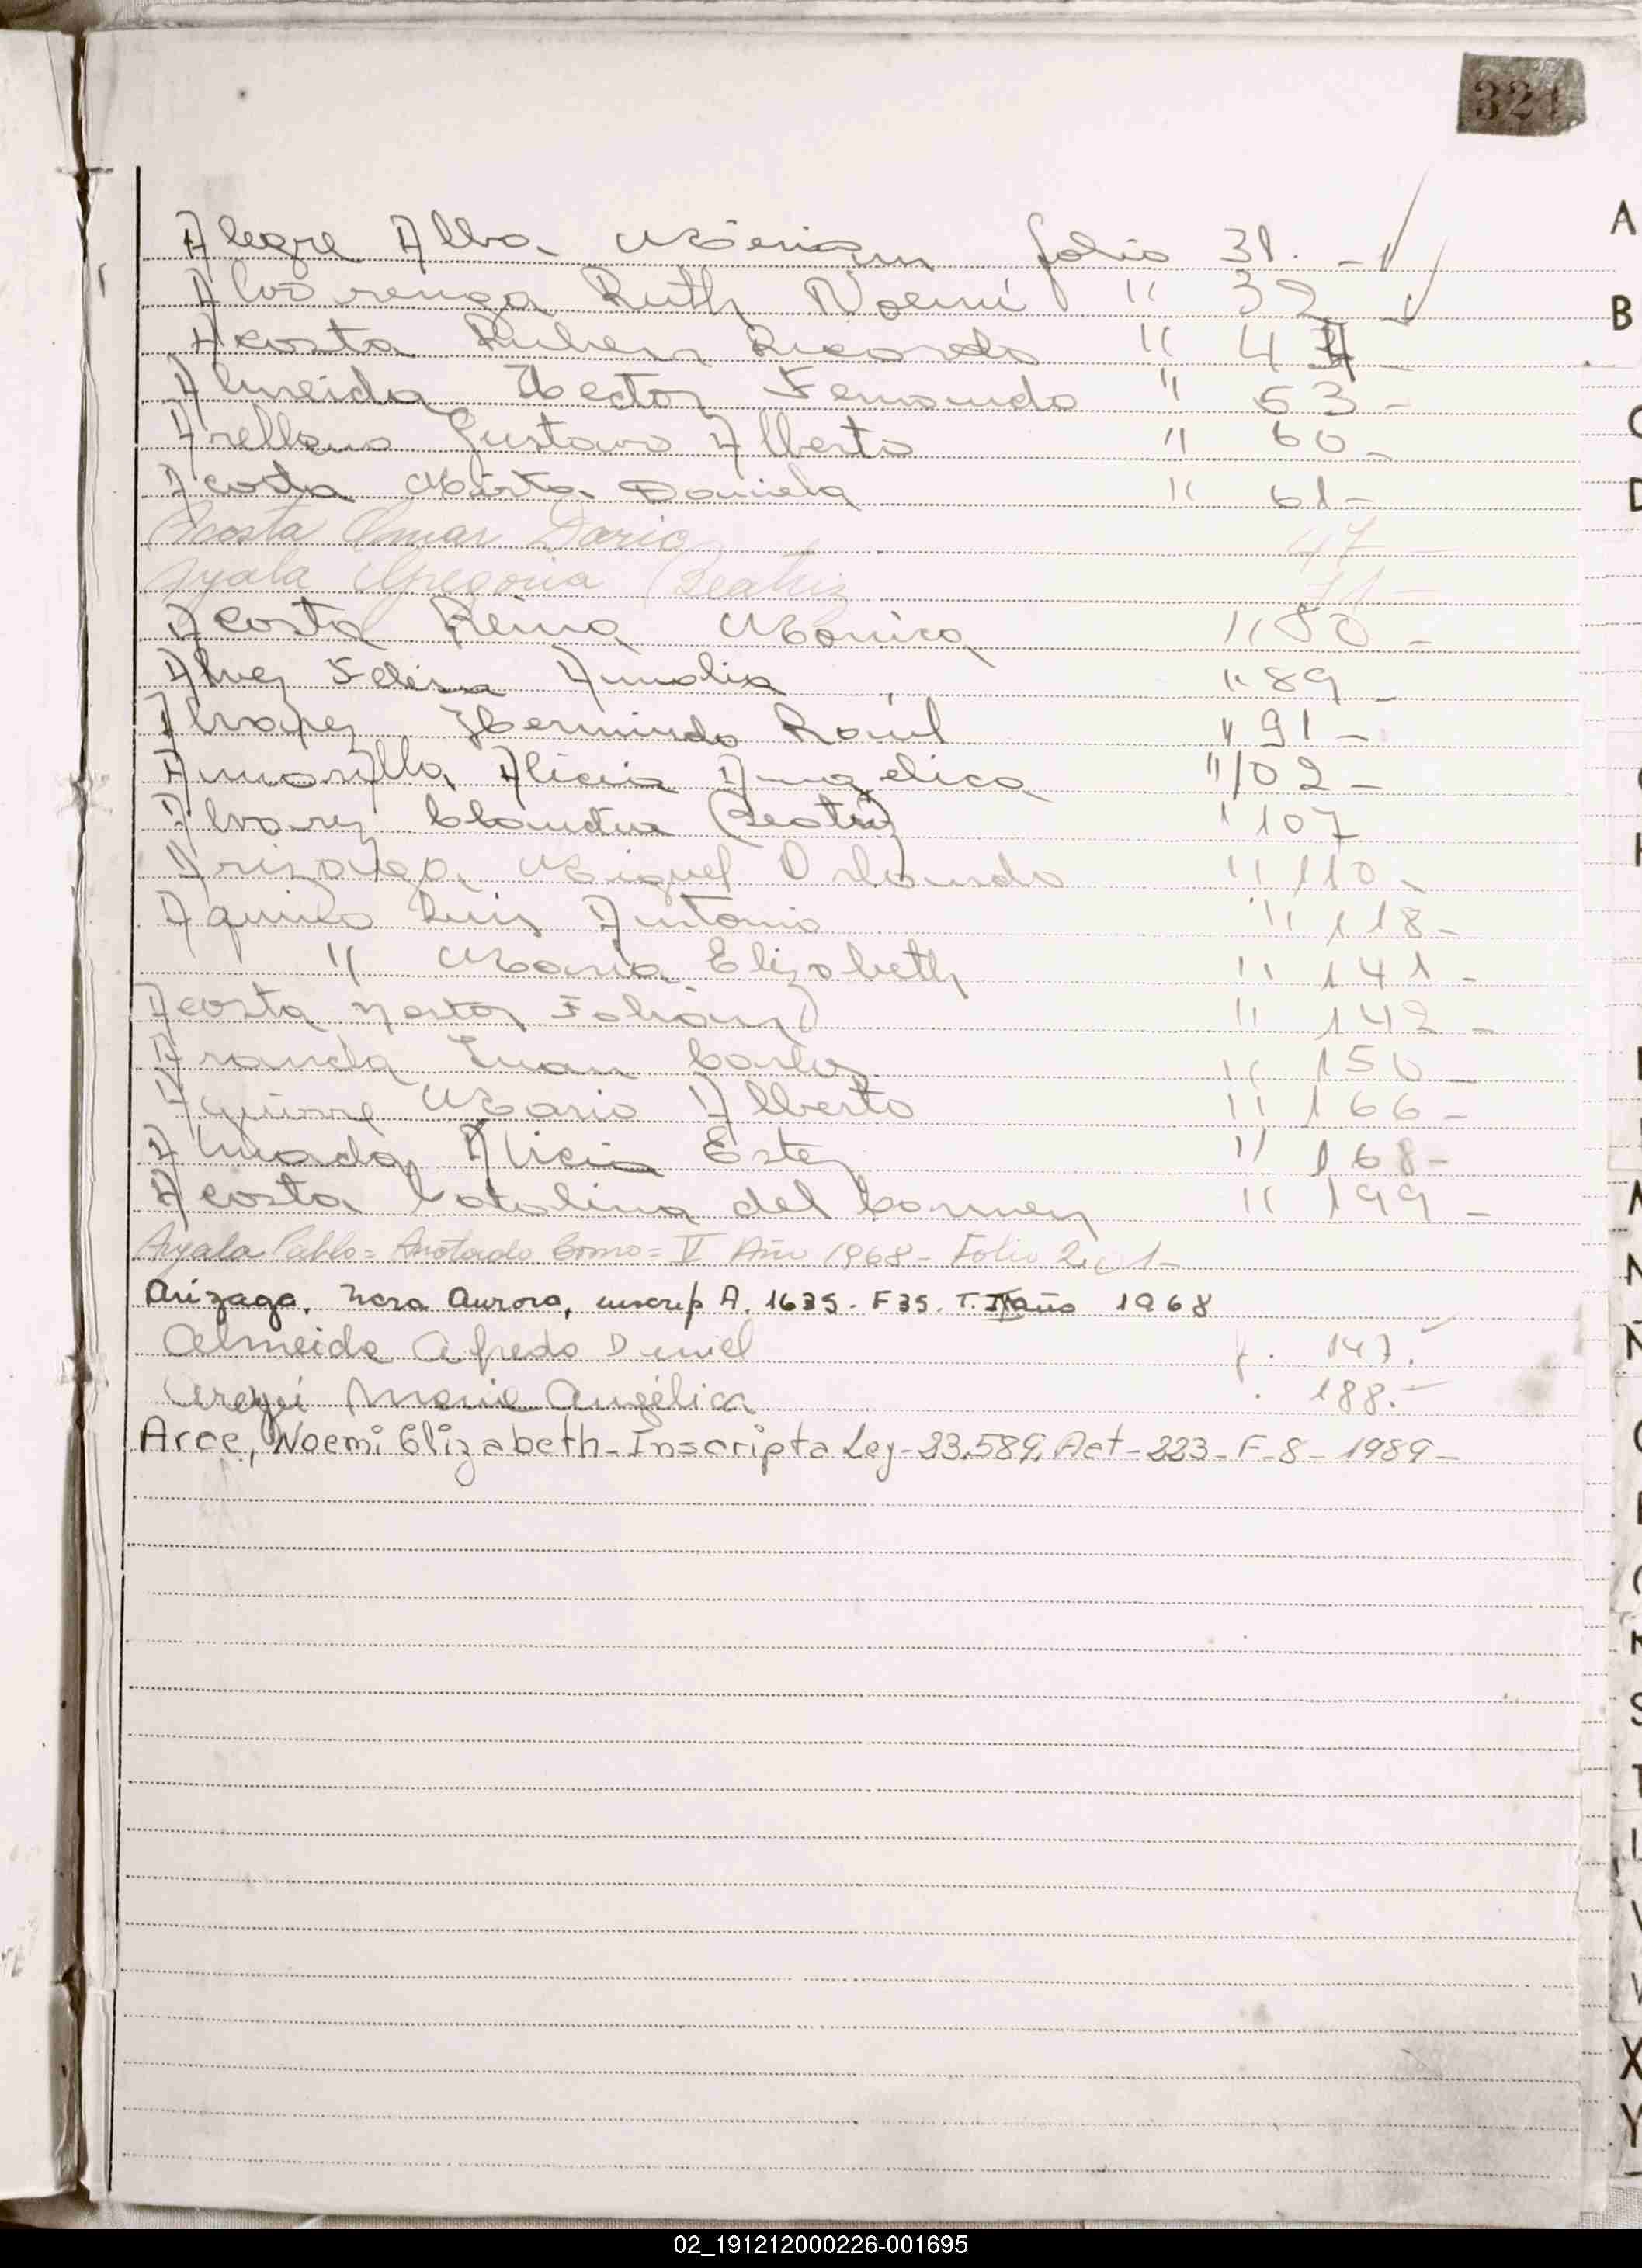 321
Alegre Alba Miriam folio 31. -
Alvarenga Ruth Noemí " 32 -
Acosta Ruben Ricardo " 44 -
Almeida Hector Fernando " 53 -
Arellano Gustavo Alberto " 60 -
Acosta Mirta Daniela " 61 -
Acosta Omar Dario 47 -
Ayala Gregoria Beatriz 71 -
Acosta Reina Monica " 80 -
Alvez Felisa Amalia " 89 -
Alvarez Hermindo Raúl " 91 -
Amarilla Alicia Angelica " 102 -
Alvarez Claudia Beatriz " 107
Arizaga Miguel Orlando " 110 -
Aquino Luis Antonio " 118 -
" Maria Elizabeth " 141 -
Acosta Nestor Fabian " 142 -
Aranda Juan Carlos " 150 -
Aguirre Mario Alberto " 166 -
Almada Alicia Ester " 168 -
Acosta Catalina del Carmen " 199 -
Ayala Pablo = Anotado Tomo = V Año 1968 - Folio 201 -
Arizaga, Nora Aurora, inscrip A. 1635. F 35. T. año 1968
Almeida Alfredo Daniel f. 147. -
Maria Angélica . 188. -
Arce, Noemi Elizabeth - Inscripta Ley - 23.589, Act - 223 - F - 8 - 1989 -
A
B
C
D
H
M
N
Ñ
S
T
V
X
Y
02_191212000226-001695